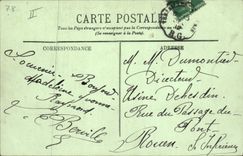 CARTE POSTALE
Tous les pays étrangers n'acceptent pas la Correspondance
(Se renseigner à la Poste)
CORRESPONDANCE
ADRESSE
Souvenir Bonjour
Madeleine Yvonne
Raymond
Berville
M. M. Dumontier
Directeur
Usine
Rue du Passage du
Pont
Rouen
S. Inférieure